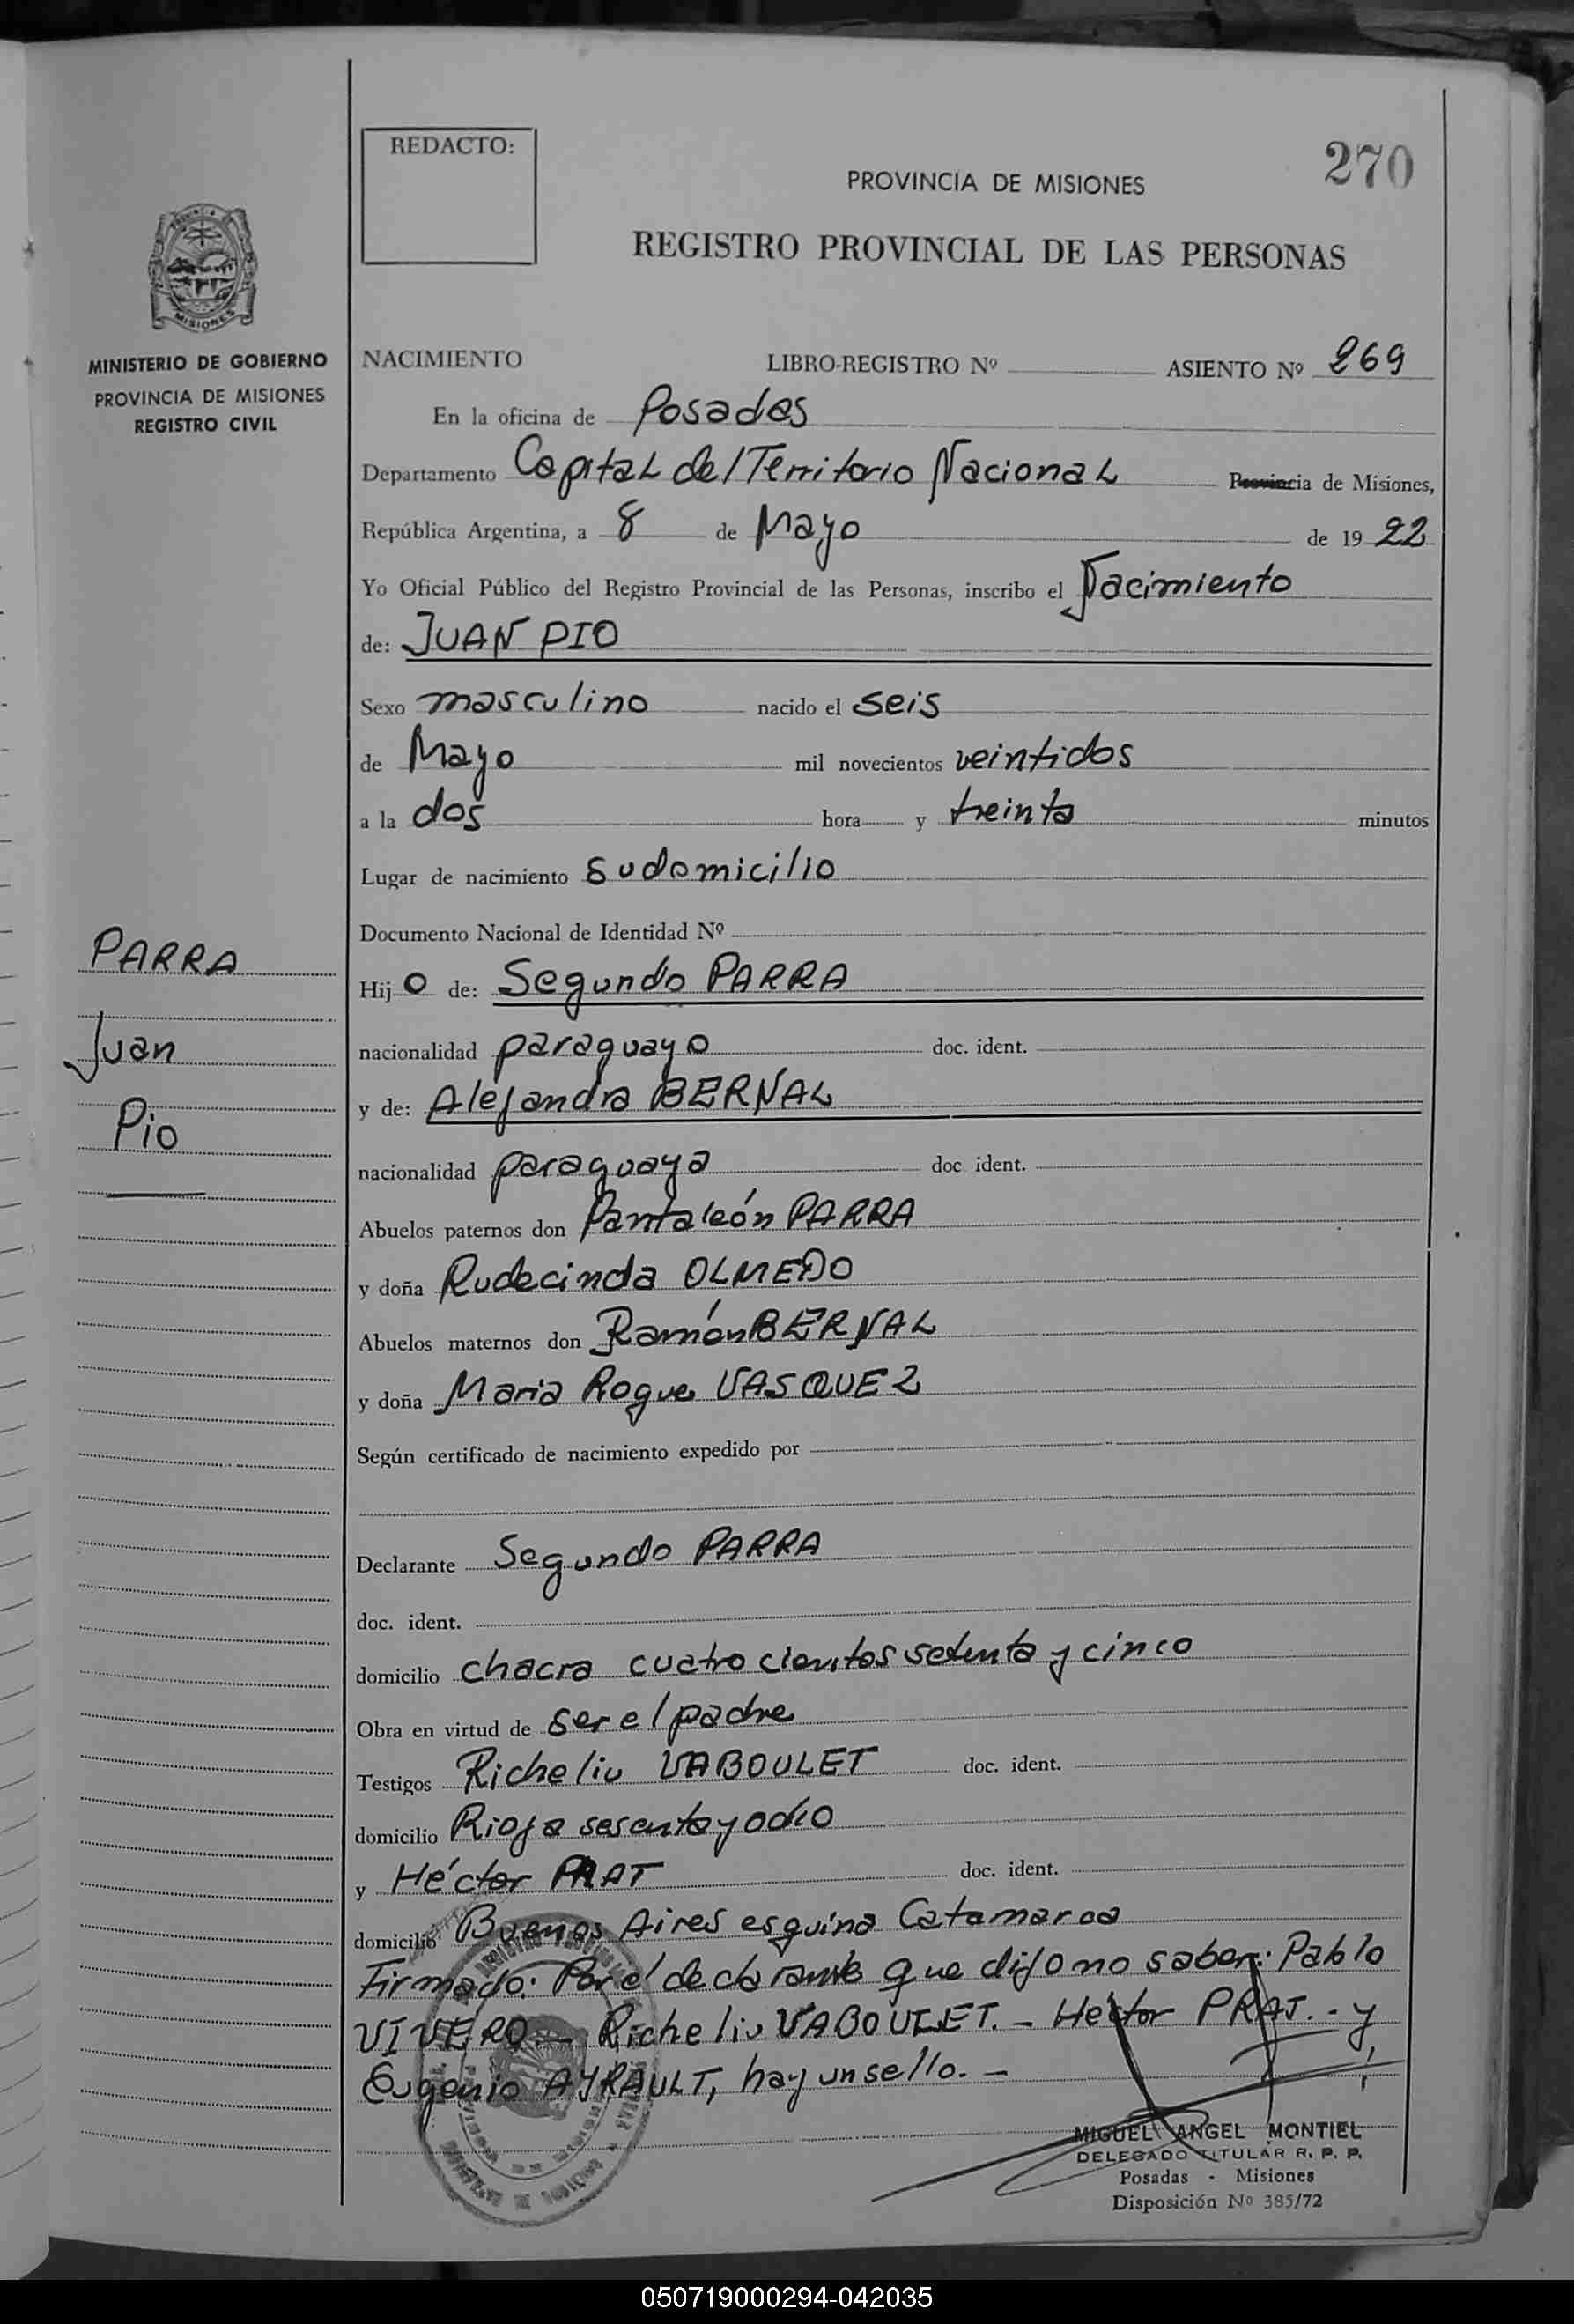 REDACTO:
270
PROVINCIA DE MISIONES
REGISTRO PROVINCIAL DE LAS PERSONAS
MISIONES
MINISTERIO DE GOBIERNO
PROVINCIA DE MISIONES
REGISTRO CIVIL
NACIMIENTO LIBRO-REGISTRO Nº ASIENTO Nº 269
En la oficina de Posadas
Departamento Capital del Territorio Nacional Provincia de Misiones,
República Argentina, a 8 de Mayo de 1922
Yo Oficial Público del Registro Provincial de las Personas, inscribo el Nacimiento
de: JUAN PIO
Sexo masculino nacido el seis
de Mayo mil novecientos veintidos
a la dos hora y treinta minutos
Lugar de nacimiento su domicilio
Documento Nacional de Identidad Nº
PARRA
Juan
Pio
Hijo de: Segundo PARRA
nacionalidad paraguayo doc. ident.
y de: Alejandra BERNAL
nacionalidad paraguaya doc. ident.
Abuelos paternos don Pantaleón PARRA
y doña Rudecinda OLMEDO
Abuelos maternos don Ramón BERNAL
y doña Maria Roque VASQUEZ
Según certificado de nacimiento expedido por
Declarante Segundo PARRA
doc. ident.
domicilio chacra cuatro cientos setenta y cinco
Obra en virtud de ser el padre
Testigos Richeliu VABOULET doc. ident.
domicilio Rioja sesenta y ocho
y Héctor PRAT doc. ident.
domicilio Buenos Aires esquina Catamarca
Firmado: Por el declarante que dijo no saber: Pablo
VIVERO.- Richeliu VABOULET.- Héctor PRAT.- y
Eugenio AYRAULT, hay un sello.-
MIGUEL ANGEL MONTIEL
DELEGADO TITULAR R. P. P.
Posadas - Misiones
Disposición Nº 385/72
050719000294-042035